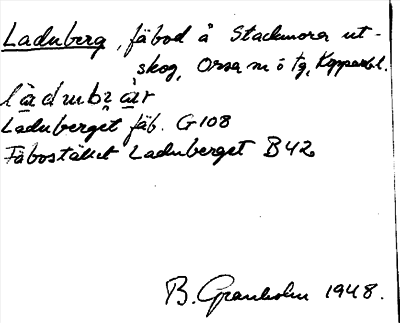 Laduberg, fäbod å Stackmora ut-
skog, Orsa sn ö tg, Kopparb l.
làdubær
Laduberget fäb. G108
Fäbostället Laduberget B42
B. Granholm 1948.